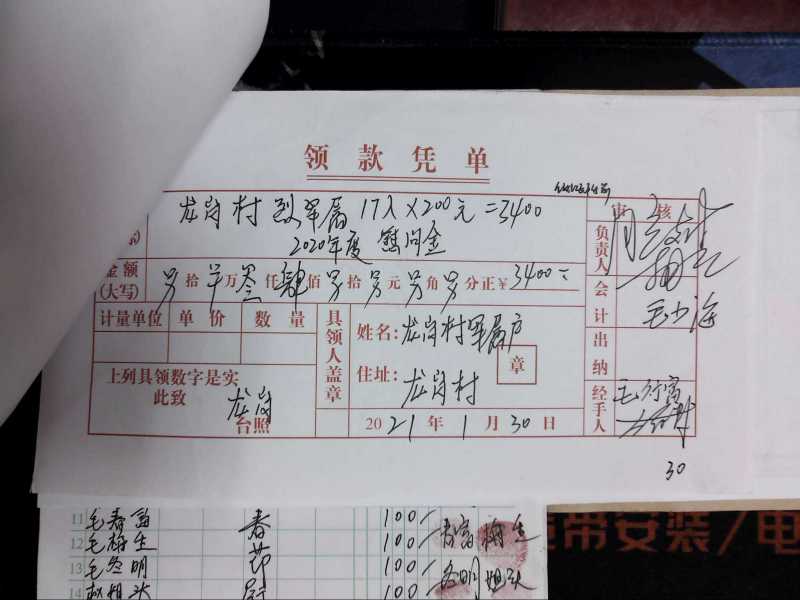 领款凭单
龙岗村 烈军属 17人×200元=3400
2020年度 慰问金
审核
金额
(大写)
拾 万 叁仟 肆佰 拾 元 角 分正¥ 3400
计量单位 单价 数量
上列具领数字是实
此致
龙岗
台照
具领人盖章
姓名: 龙岗村军属户
住址: 龙岗村
章
2021年1月30日
负责人
会计 毛小海
出纳
经手人 毛行富
30
11 毛春富 春 100 春富
12 毛梅生 节 100 梅生
13 毛冬明 慰 100 冬明
14 赵相头 100 相头
带安装/电